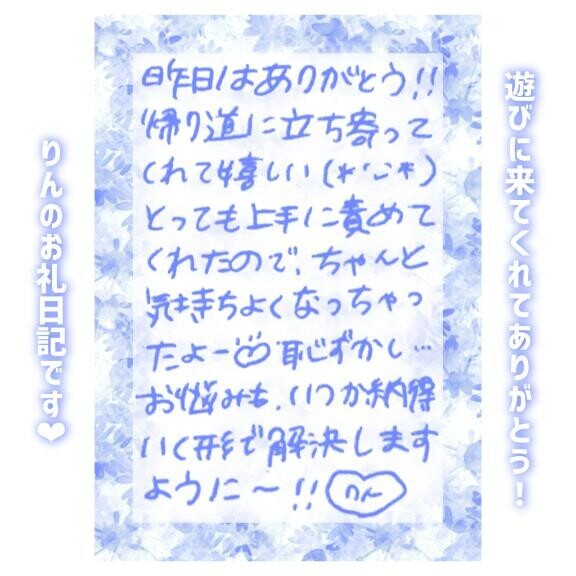 遊びに来てくれてありがとう！
昨日はありがとう!!
帰り道に立ち寄って
くれて嬉しい(*'ᵕ'*)
とっても上手に責めて
くれたので、ちゃんと
気持ちよくなっちゃっ
たよー♡恥ずかし…
お悩みも、いつか納得
いく形で解決します
ように〜!! りん
りんのお礼日記です❤